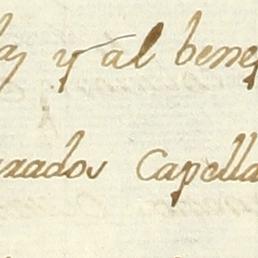 y al benef
rados Capella